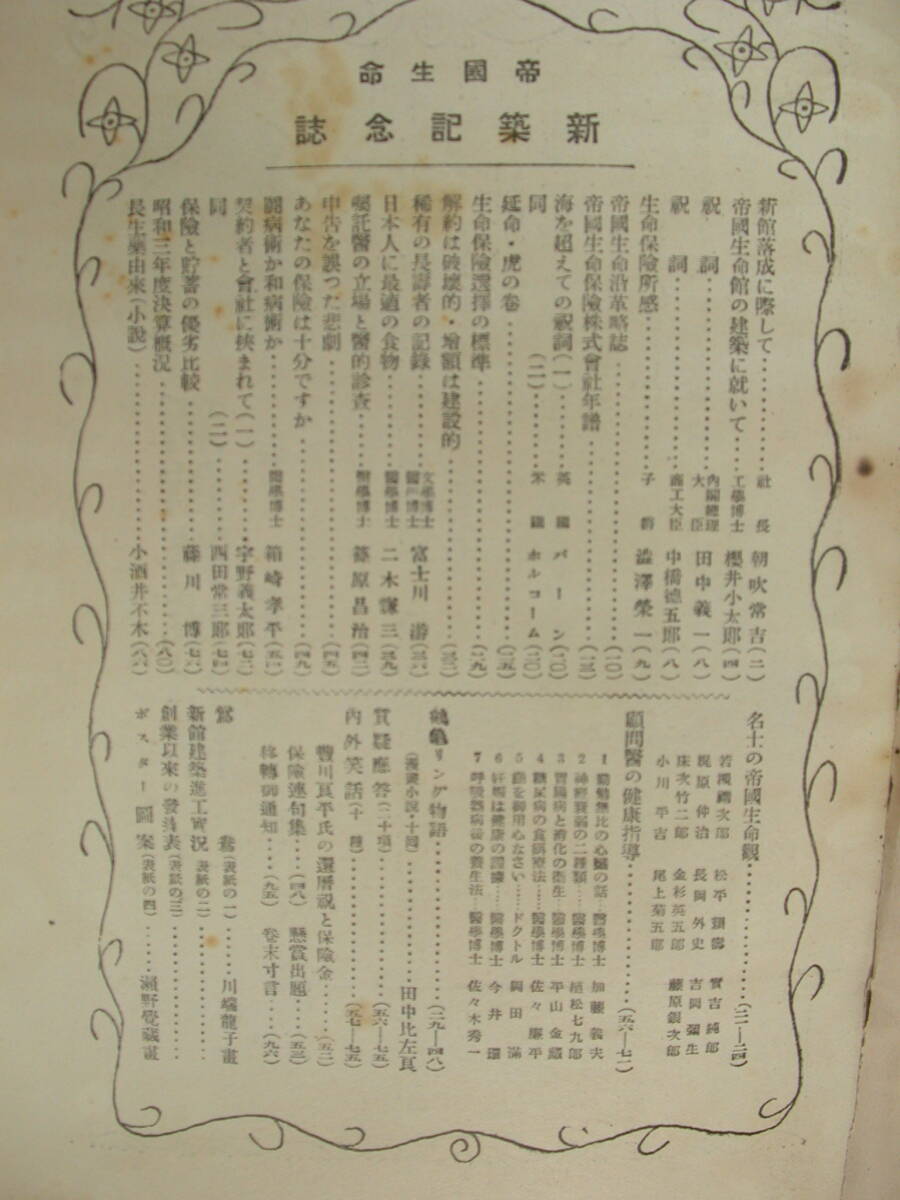 帝國生命
新築記念誌
新館落成に際して………社長 朝吹常吉(二)
帝國生命館の建築に就いて……工學博士 櫻井小太郎(四)
祝詞………内閣總理大臣 田中義一(八)
祝詞………商工大臣 中橋德五郎(八)
生命保險所感………子爵 澁澤榮一(九)
帝國生命沿革略誌………(一〇)
帝國生命保險株式會社年譜………(一三)
海を超えての祝詞(一)……英國 バーン(二〇)
同(二)……米國 ホルコーム(二〇)
延命・虎の卷………(二五)
生命保險選擇の標準………(二九)
解約は破壞的・增額は建設的………(三二)
稀有の長壽者の記錄……文學博士 醫學博士 富士川游(三六)
日本人に最適の食物……醫學博士 二木謙三(三九)
囑託醫の立場と醫的診査……醫學博士 篠原昌治(四二)
申告を誤つた悲劇………(四五)
あなたの保險は十分ですか………(四九)
鬪病術か和病術か……醫學博士 箱崎孝平(五一)
契約者と會社に挾まれて(一)……宇野義太郎(七二)
同(二)……四田堂三郎(七四)
保險と貯蓄の優劣比較………藤川博(七六)
昭和三年度決算槪況………(八〇)
長生樂由來(小說)………小酒井不木(八六)
名士の帝國生命觀………(二一—二四)
若槻禮次郎 松平賴壽 實吉純郎
梶原仲治 長岡外史 吉岡彌生
床次竹二郎 金杉英五郎 藤原銀次郎
小川平吉 尾上菊五郎
顧問醫の健康指導………(五六—七一)
1 勤勉無比の心臟の話…醫學博士 加藤義夫
2 神經衰弱の二種類…醫學博士 植松七九郎
3 胃腸病と消化の衞生…醫學博士 平山金藏
4 糖尿病の食餌療法……醫學博士 佐々廉平
5 齒を御用心なさい……ドクトル 岡田滿
6 妊娠は健康の證據……醫學博士 今井環
7 呼吸器病後の養生法…醫學博士 佐々木秀一
鶴龜リング物語………(二九—四八)
(漫畫小說・十囘)………田中比左良
質疑應答(二十項)………(五六—七五)
內外笑話(十種)………(五七—七五)
豐川良平氏の還曆祝と保險金……(五二)
保險連句集……(四八) 懸賞出題……(五三)
移轉御通知……(九五) 卷末寸言…(九六)
鴛鴦(表紙の一)………川端龍子畫
新館建築進工實況(表紙の二)………
創業以來の發員表(表紙の三)………
ポスター圖案(表紙の四)……瀨野覺藏畫